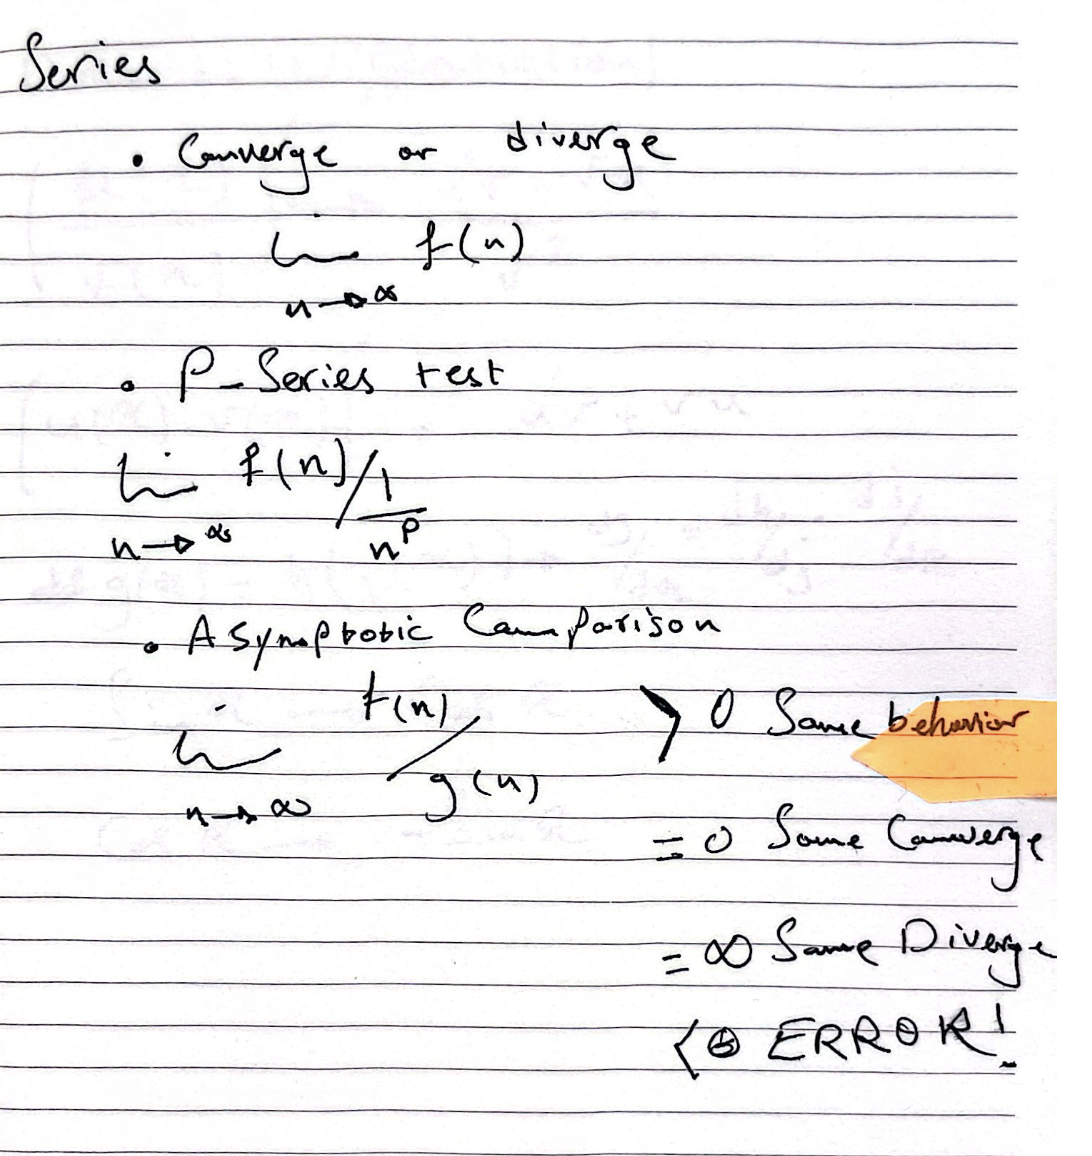 Series
• Converge or diverge
lim f(n)
n→∞
• P-Series test
lim f(n)/1
n→∞ n^p
• Asymptotic Comparison
lim f(n)/g(n) > 0 Same behavior
n→∞
= 0 Same Converge
= ∞ Same Diverge
< 0 ERROR!